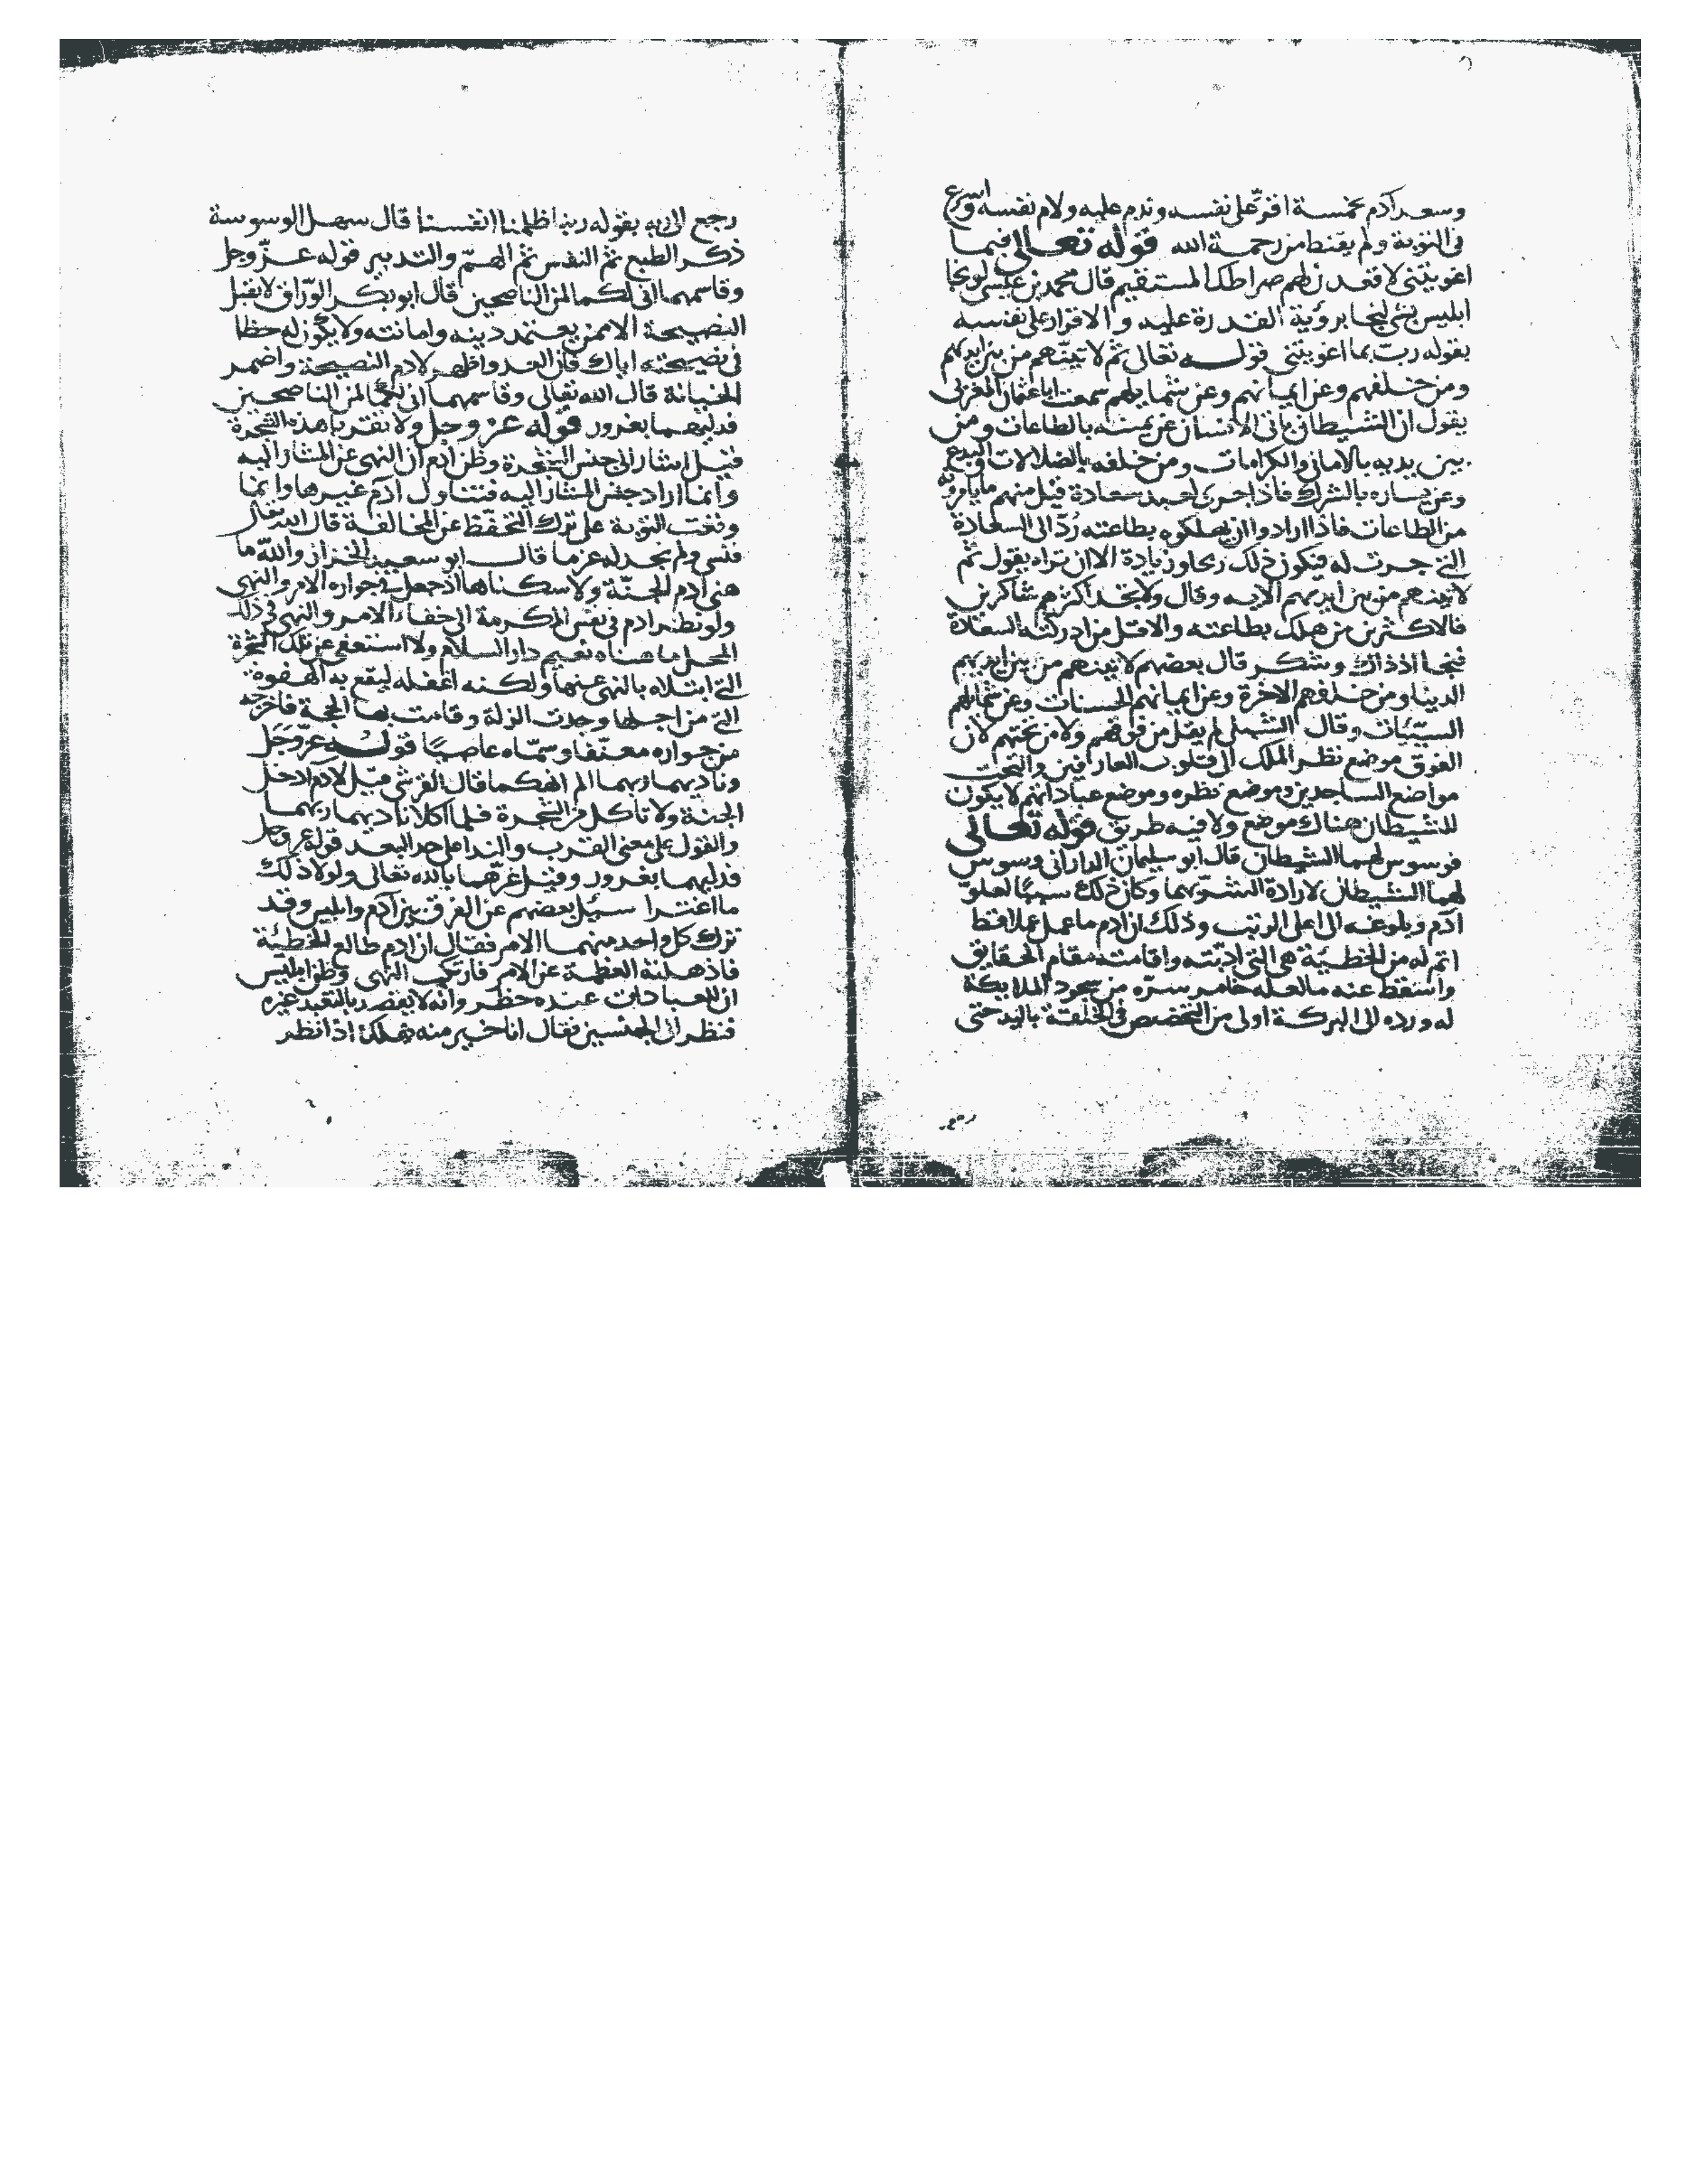 وسعد ادم بخمسة اقر على نفسه وندم عليه ولام نفسه واسرع
فى التوبة ولم يقنط من رحمة الله قوله تعالى فبما
اغويتنى لاقعدن لهم صراطك المستقيم قال محمد بن عيسى لو نجا
ابليس بشى لنجا برؤية القدرة عليه والاقرار على نفسه
بقوله ربّ بما اغويتنى قوله تعالى ثم لاتينّهم من بين ايديهم
ومن خلفهم وعن ايمانهم وعن شمايلهم سمعت ابا عثمان المغربى
يقول ان الشيطان ياتى الانسان عن يمينه بالطاعات ومن
بين يديه بالامانى والكرامات ومن خلفه بالضلالات والبدع
وعن يساره بالشرك فاذا جرى لعبد سعادة قبل منهم ما يامرونه
من الطاعات فاذا ارادوا ان يهلكوه بطاعته رُدّ الى السعادة
التى جرت له فتكون ذلك ربحا وزيادة الا ان تراه يقول ثم
لاتينهم من بين ايديهم الاية وقال ولا تجد اكثرهم شاكرين
فالاكثرين من هلك بطاعته والاقل من ادركته السعادة
فنجا اذ ذاك وشكر قال بعضهم لاتينهم من بين ايديهم
الدنيا ومن خلفهم الاخرة وعن ايمانهم الحسنات وعن شمايلهم
السيّئات وقال الشبلى لم يقل من فوقهم ولا من تحتهم لان
الفوق موضع نظر الملك الى قلوب العارفين والتحت
مواضع الساجدين وموضع نظره وموضع عباداتهم لا يكون
للشيطان هناك موضع ولا فيه طريق قوله تعالى
فوسوس لهما الشيطان قال ابو سليمان الدارانى وسوس
لهما الشيطان لارادة الشرّ بهما وكان ذلك سببًا لعلوّ
آدم وبلوغه الى اعلى الرتب وذلك ان ادم ما عمل عملا قط
اتم له من الخطيئة هى التى ادّبته واقامته مقام الحقايق
واسقط عنه ما لعله خامر سرّه من سجود الملايكة
له ورده الى البركة اولى من التخصص فى الخلقة باليد حتى
رجع الى ربه بقوله ربنا ظلمنا انفسنا قال سهل الوسوسة
ذكر الطبع ثم النفس ثم الهمّ والتدبير قوله عزّ وجل
وقاسمهما انى لكما لمن الناصحين قال ابو بكر الورّاق لا يقبل
النصيحة الا ممن يعتمد دينه وامانته ولا يكون له حظا
فى نصيحته اياك فان العدو اظهر لادم النصيحة واضمر
الخيانة قال الله تعالى وقاسمهما انى لكما لمن الناصحين
فدليهما بغرور قوله عز وجل ولا تقربا هذه الشجرة
قيل اشار الى جنس الشجرة وظن ادم ان النهى عن المشار اليه
وانما اراد جنس المشار اليه فتناول ادم غيرها وانما
وقعت التوبة على ترك التحفّظ عن المخالفة قال الله تعالى
فنسى ولم نجد له عزما قال ابو سعيد الخراز والله ما
هنى ادم الجنّة ولا سكناها اذ جعل فى جواره الامر والنهى
ولو نظر ادم فى نفس المكرمة الى خفاء الامر والنهى فى ذلك
المحل ما هناه نعيم دار السلام ولا استعفى عن تلك الشجرة
التى ابتلاه بالنهى عنها ولكنه اغفله ليقع به الهفوة
التى من اجلها وجدت الزلة وقامت بها الحجة فاخرجه
من جواره معنّفا وسمّاه عاصيًا قوله عزّ وجل
وناديهما ربهما الم انهكما قال القرشى قيل لادم ادخل
الجنة ولا تاكل من الشجرة فلما اكلا ناديهما ربهما
والقول على معنى القرب والندا على حد البعد قوله عز وجل
فدليهما بغرور وقيل غرّهما بالله تعالى ولولا ذلك
ما اغترا سئل بعضهم عن الفرق بين آدم وابليس وقد
ترك كل واحد منهما الامر فقال ان ادم طالع الخطيئة
فاذهلته العظمة عن الامر فارتكب النهى وظن ابليس
ان للعبادات عنده خطر وانه لا يقصد بالتعبد غيره
فنظر الى الجنسين فقال انا خير منه فهلك اذا نظر